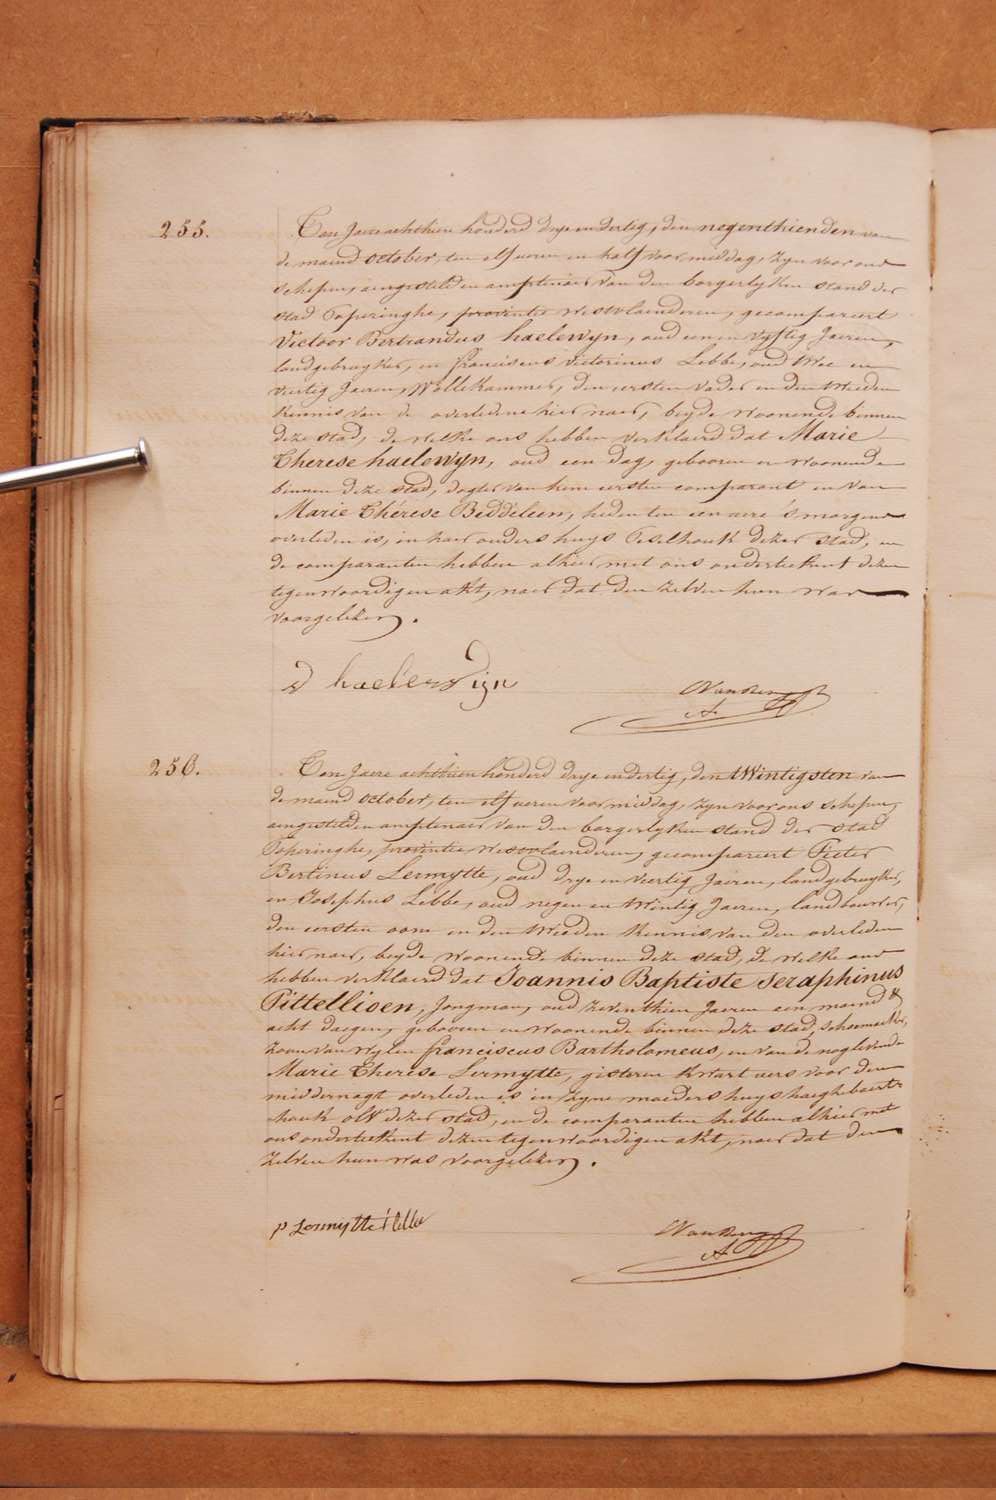 255.
Ten Jaere achthien honderd drye en dertig, den negenthienden van
de maend october, ten elf ueren en half voor middag, zyn voor ons
schepen, aengestelden amptenaer van den borgerlyken stand der
stad Poperinghe, provintie westvlaenderen, gecompareert
Victoor Bertrandus haelewyn, oud een en vyftig Jaeren,
landgebruyker, en franciscus victorinus Lebbe, oud twee en
viertig Jaeren, Wollekammer, den eersten vader en den tweeden
kennis van de overledene hier naer, beyde woonende binnen
deze stad, de welke ons hebben verklaerd dat Marie
Therese haelewyn, oud een dag, gebooren en woonende
binnen deze stad, dogter van hem eersten comparant en van
Marie Thérese Beddeleen, heden ten een uere 's morgens
overleden is, in haer ouders huys Peselhouk dezer stad, en
de comparanten hebben alhier met ons onderteekent dezen
tegenwoordigen akt, naer dat den zelven hun was
voorgelezen.
haelewijn
256.
Ten Jaere achthien honderd drye en dertig, den twintigsten van
de maend october, ten elf ueren voor middag, zyn voor ons schepen,
aengestelden amptenaer van den borgerlyken stand der stad
Poperinghe, provintie westvlaenderen, gecompareert Pieter
Bertinus Lermytte, oud drye en viertig Jaeren, landgebruyker,
en Josephus Lebbe, oud negen en twintig Jaeren, landbouwer,
den eersten oom en den tweeden kennis van den overleden
hier naer, beyde woonende binnen deze stad, de welke ons
hebben verklaerd dat Joannis Baptiste seraphinus
Pittellioen, Jongman, oud zeventhien Jaeren een maend &
acht daegen, gebooren en woonende binnen deze stad, schoemaeker,
zoon van wylen franciscus Bartholomeus, en van de noglevende
Marie Therese Lermytte, gisteren kwart uers voor den
middernagt overleden is in zyne moeders huys haeghebaert-
houk oW dezer stad, en de comparanten hebben alhier met
ons onderteekent dezen tegenwoordigen akt, naer dat den
zelven hun was voorgelezen.
p Lermytte J lebbe